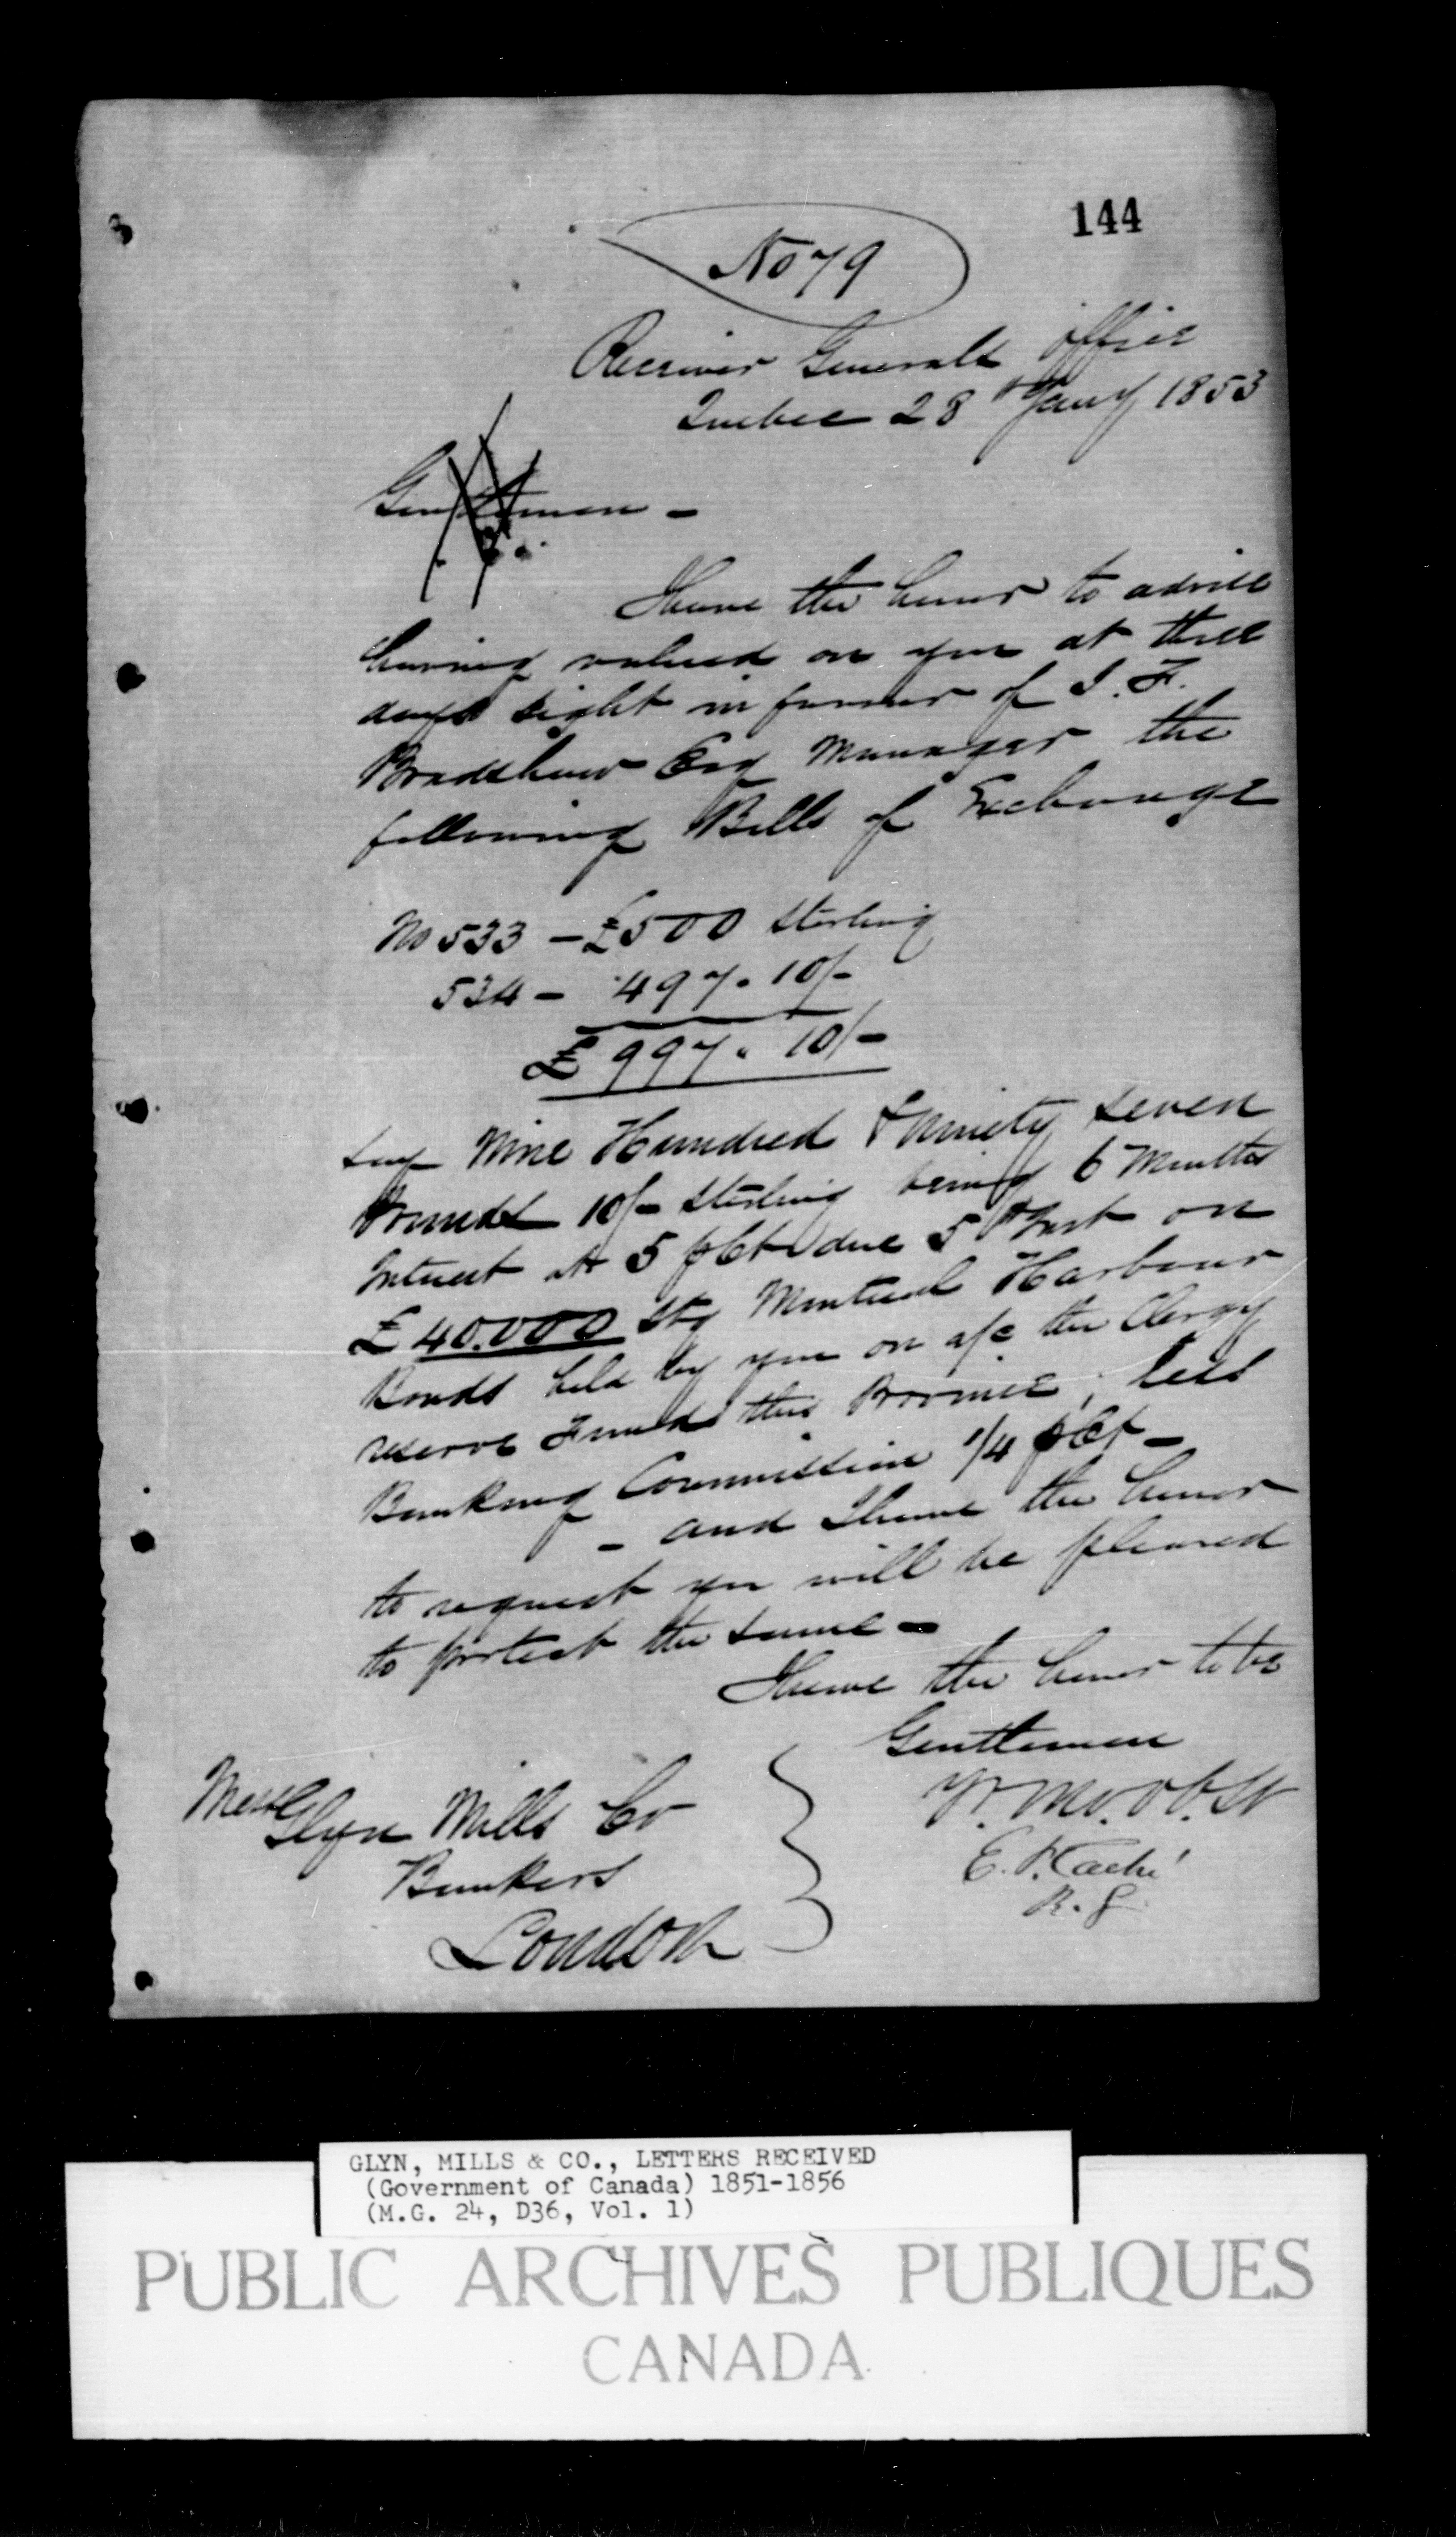 144
No 79
Receiver Generals office
Quebec 28 Jany 1853
Gentlemen -
I have the honor to advise
having valued on you at three
days sight in favour of J. F.
Bradshaw Esq Manager the
following Bills of Exchange
No 533 - £500 Sterling
534 - 497. 10/-
£997. 10/-
Say Nine Hundred & Ninety seven
Pounds 10/- Sterling being 6 Months
Interest at 5 pCt due 5th Inst on
£40.000 Stg Montreal Harbour
Bonds held by you on a/c the Clergy
reserve Fund this Province, less
Banking Commission 1/4 pCt -
- and I have the honor
to request you will be pleased
to protect the same -
I have the honor to be
Gentlemen
Yr. Mo. Ob. St
E. P. Taché
R. G
Messrs Glyn Mills Co
Bankers
London
GLYN, MILLS & CO., LETTERS RECEIVED
(Government of Canada) 1851-1856
(M.G. 24, D36, Vol. 1)
PUBLIC ARCHIVES PUBLIQUES
CANADA